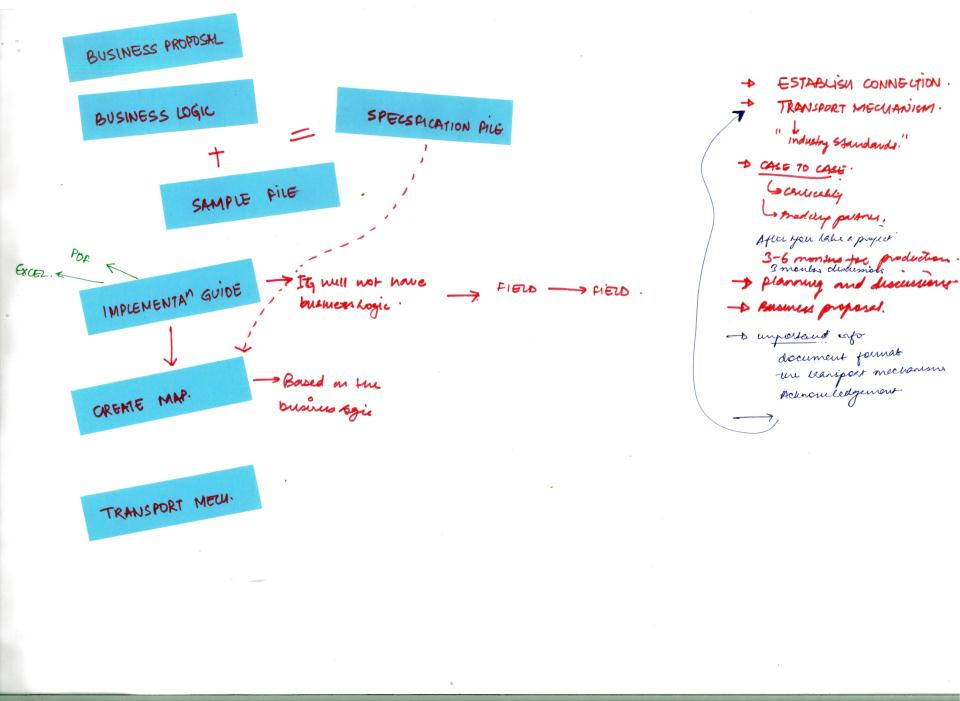 BUSINESS PROPOSAL
BUSINESS LOGIC
+
SAMPLE FILE
=
SPECSFICATION FILE
PDF
EXCEL.
IMPLEMENTAⁿ GUIDE
→ IG will not have
business Logic.
→ FIELD → FIELD.
CREATE MAP.
→ Based on the
business logic
TRANSPORT MECH.
→ ESTABLISH CONNECTION.
→ TRANSPORT MECHANISM.
"industry standards."
→ CASE TO CASE.
trading partner.
After you take a project
3-6 months for production.
3 months discussions
→ planning and discussions
→ Business proposal.
→ important info
document format
the transport mechanisms
Acknowledgement